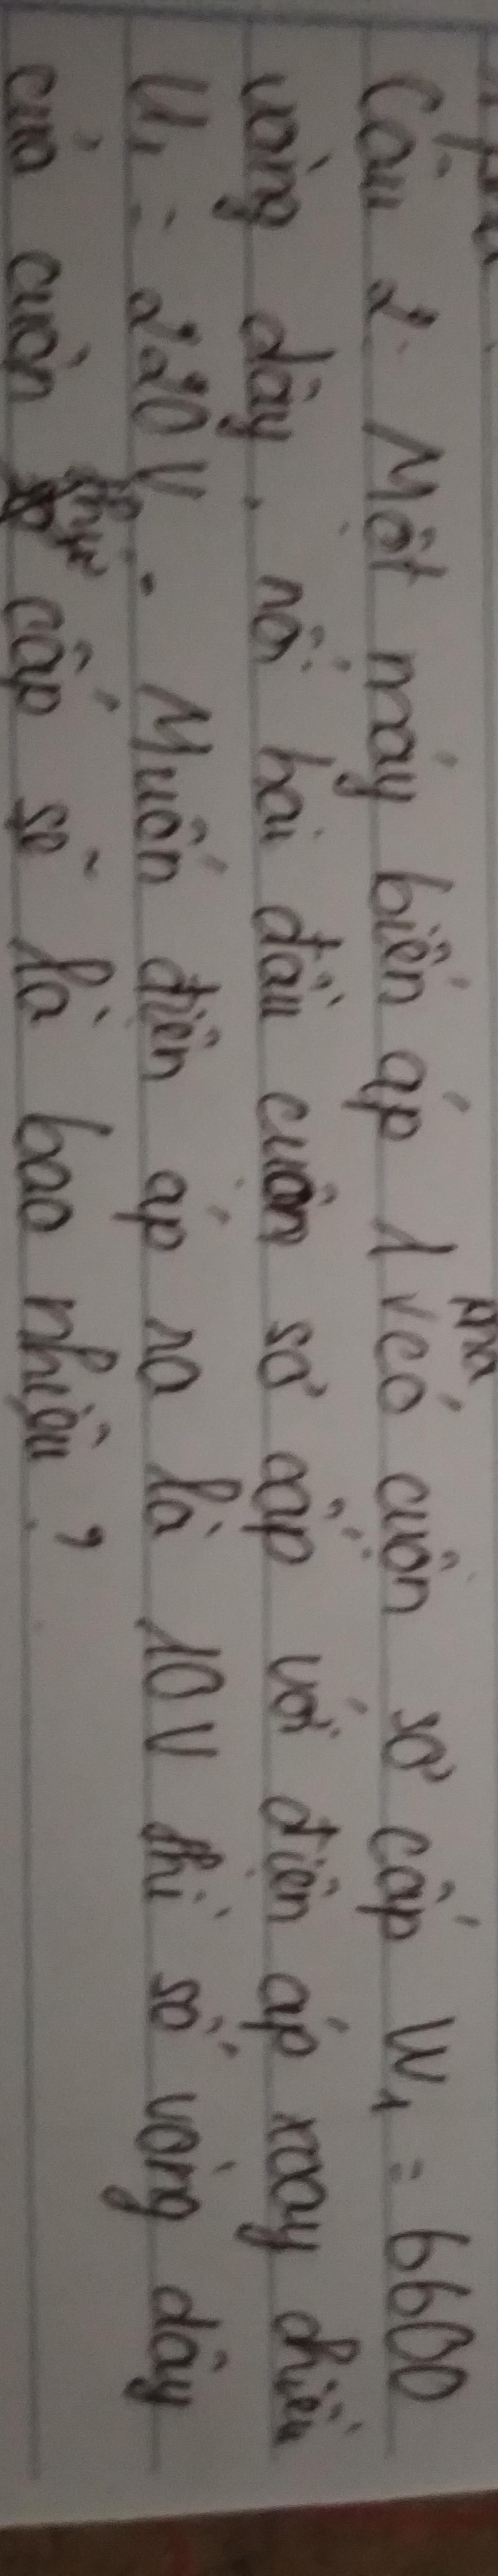 pha
Câu 2. Một máy biến áp 1 v có cuộn sơ cấp W1 = 6600
vòng dây, nối hai đầu cuộn sơ cấp với điện áp xoay chiều
U1 = 220V. Muốn điện áp ra là 10V thì số vòng dây
của cuộn thứ cấp sẽ là bao nhiêu ?